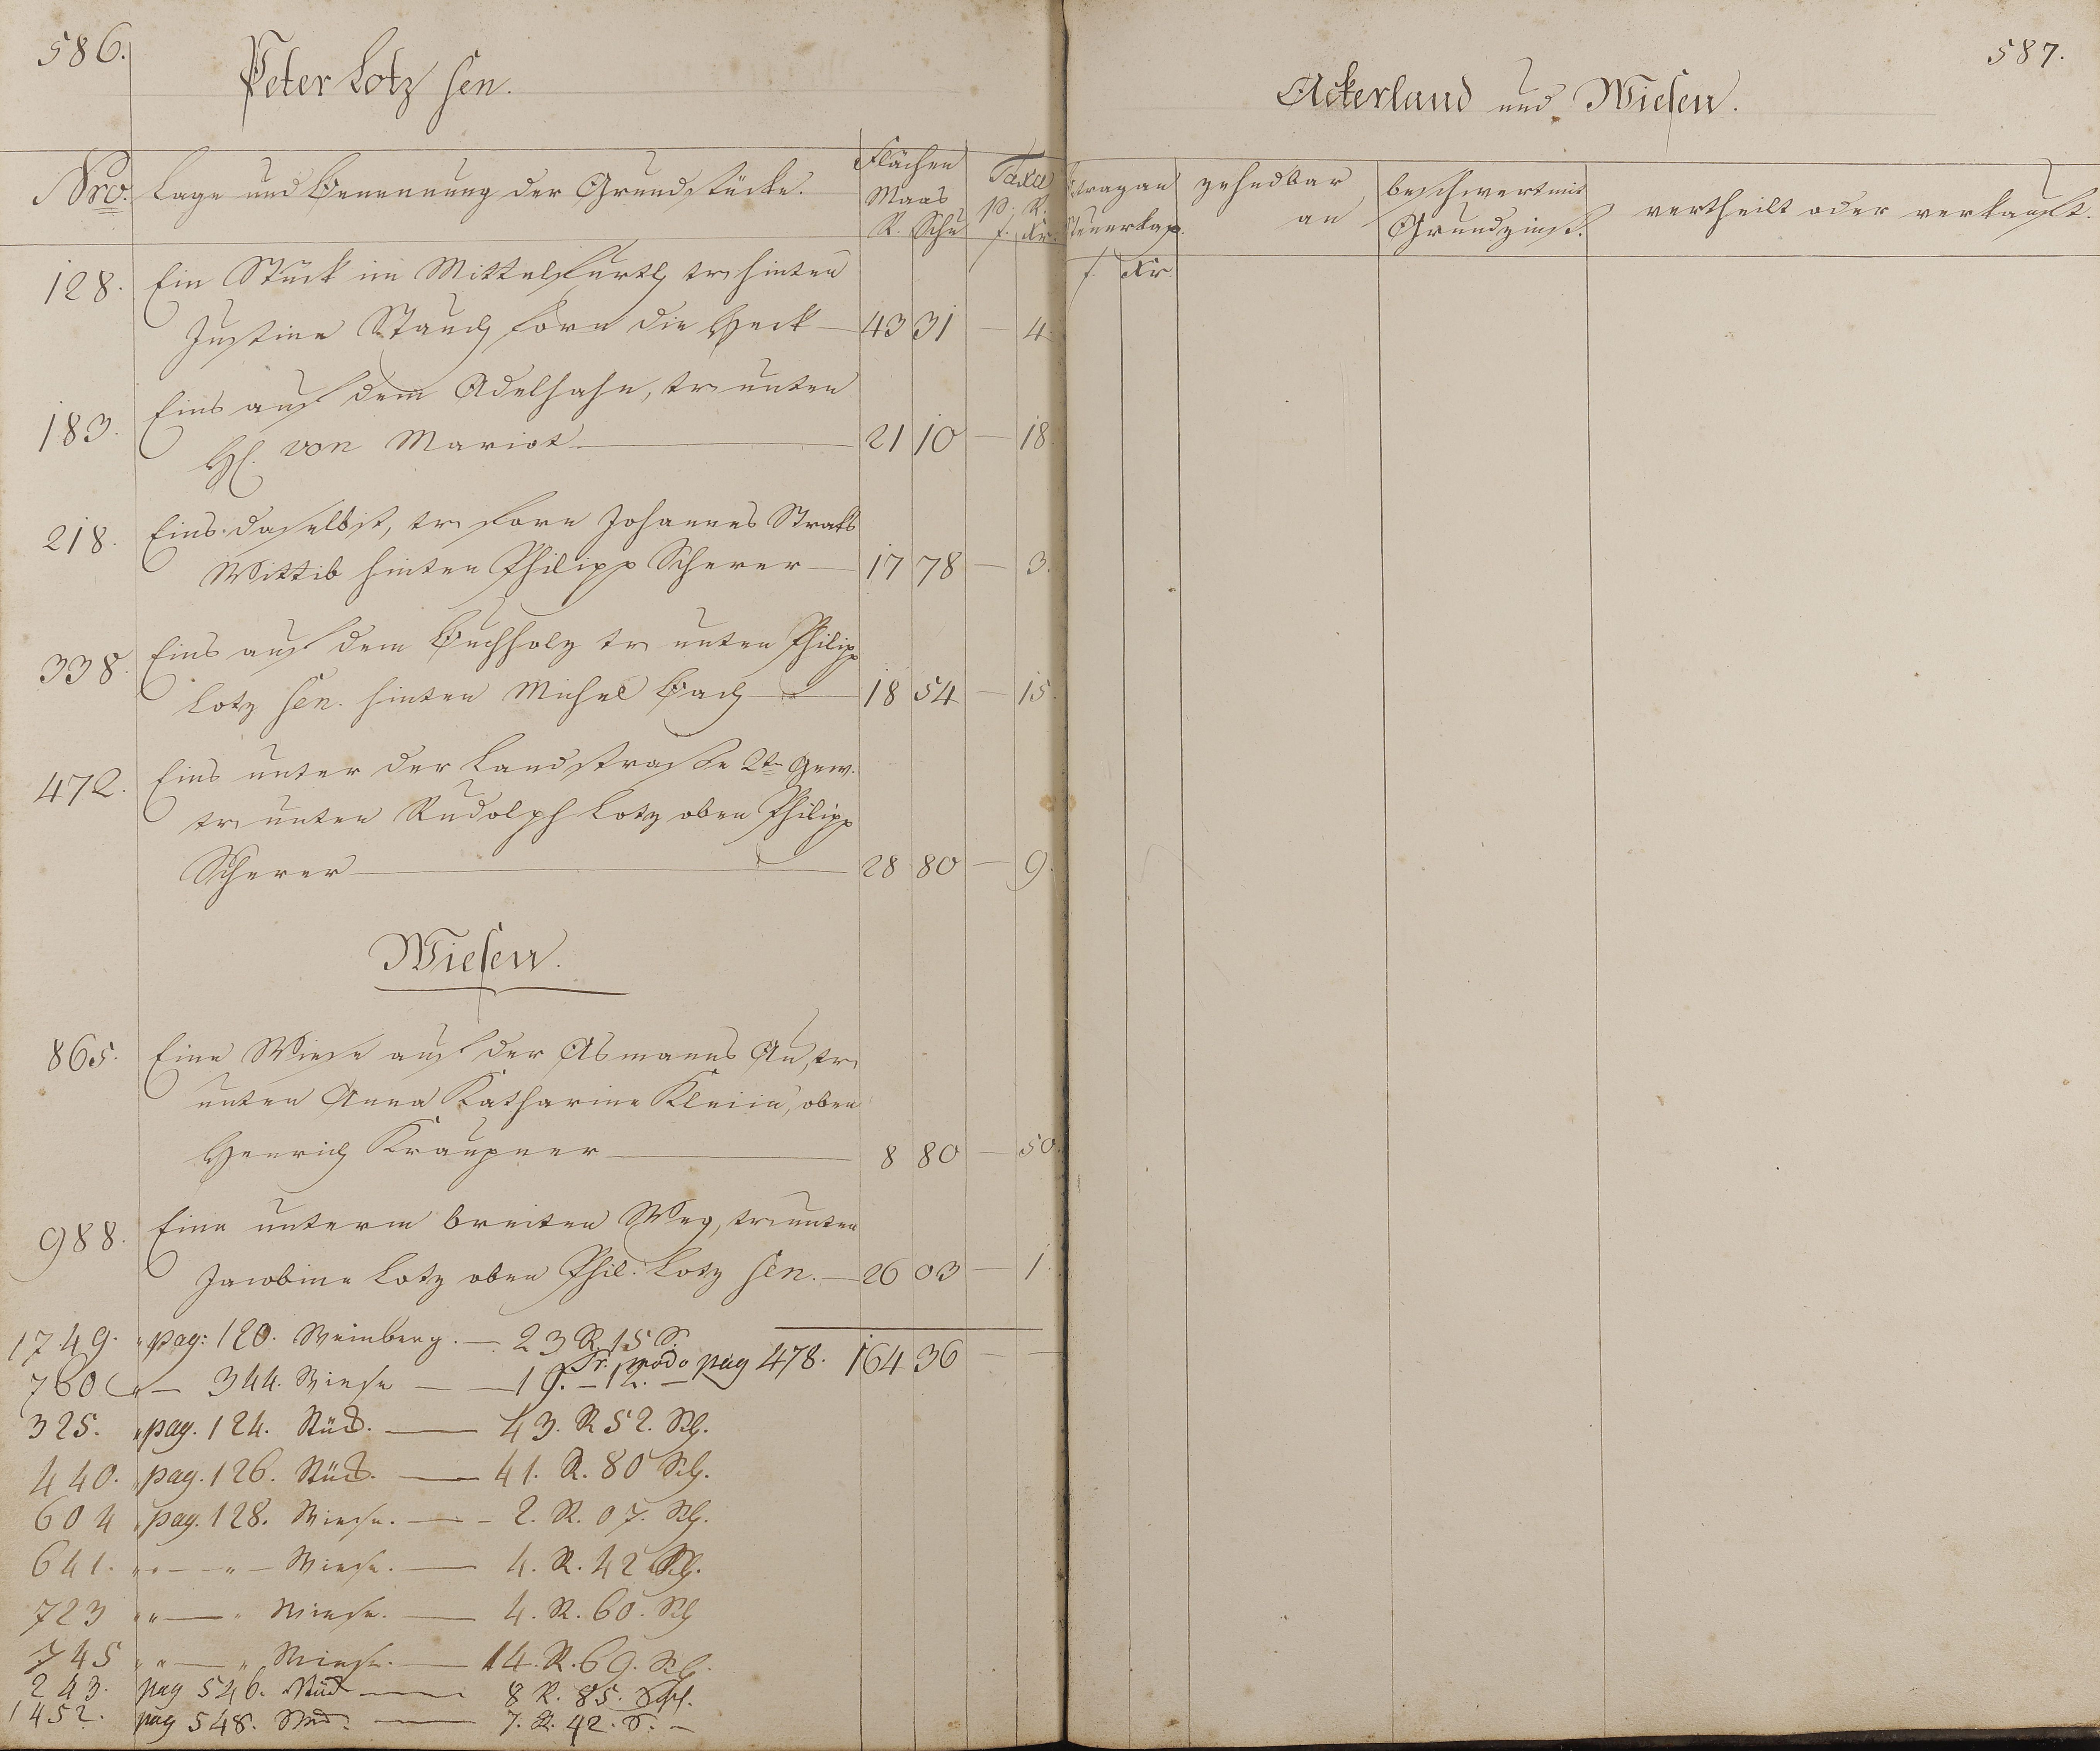 586.
Peter Lotz sen.
Nro. Lage und Benennung der Grundstücke. Flächen Maas R. Schu Taxa p. R. f. Kr.
128. Ein Stück im Mittelfurth tr. hinten
Justine Stauch forn die Heck — 43 31 4
183. Eins auf dem Adelhahn, tr. unten
H. von Mariot — 21 10 — 18.
218. Eins daselbst, tr. forn Johannes Strobs
Wittib hinten Philipp Scherer — 17 78 — 3.
338. Eins auf dem Buchholz tr. unten Philipp
Lotz sen. hinten Michel Bach — 18 54 — 15.
472. Eins unter der Landstrasse 2te Gew.
tr. unten Rudolph Lotz oben Philipp
Scherer — 28 80 — 9.
Wiesen.
865. Eine Wiese auf der Asmanns Au, tr.
unten Anna Katharine Kleiin, oben
Henrich Kraupner — 8 80 — 50.
988. Eine unterm breiten Weg, tr. unten
Jacobine Lotz oben Phil. Lotz sen. — 26 03 — 1.
1749. " pag: 120. Weinberg. — 23 R. 15 S.
Tr. modo pag 478. 164 36 — —
760 " — 344. Wiese — — 19. — 12. —
325. " pag. 124. Stück. — 43. R 52. Sch.
440. " pag. 126. Stück. — 41. R. 80 Sch.
604 " pag. 128. Wiese. — 2. R. 07. Sch.
641. " " — " — Wiese. — 4. R. 42 Sch.
723 " " — " Wiese. — 4. R. 60. Sch
745 " " — " Wiese. — 14. R. 69. Sch.
243. pag 546. Stück — 8 R. 85. Sch.
1452. pag 548. — 7. R. 42. S. —
587.
Ackerland und Wiesen.
trag an Steuerkap. f. Kr. zehndbar an beschwert mit Grundzinsß. vertheilt oder verkauft.